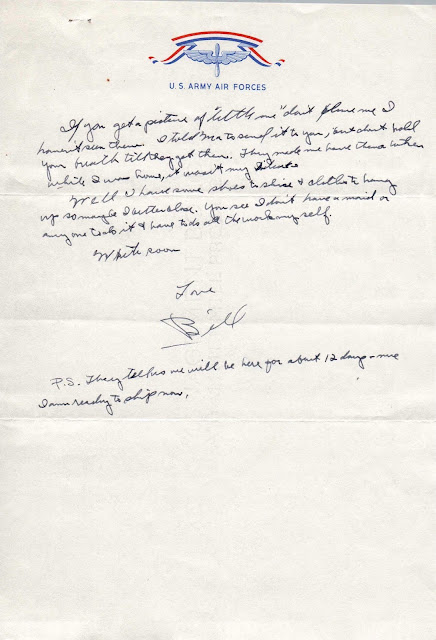 U.S. ARMY AIR FORCES
If you get a picture of "little me" don't blame me I
haven't seen them. I told Ma to send it to you, but don't hold
your breath till they get there. They made me have them taken
while I was home, it wasn't my
Well I have some shoes to shine & clothes to hang
up so maybe I better close. You see I don't have a maid or
any one to do it & have to do all the work my self.
Write soon
Love
Bill
P.S. They tell us we will be here for about 12 days - me
I am ready to ship now.